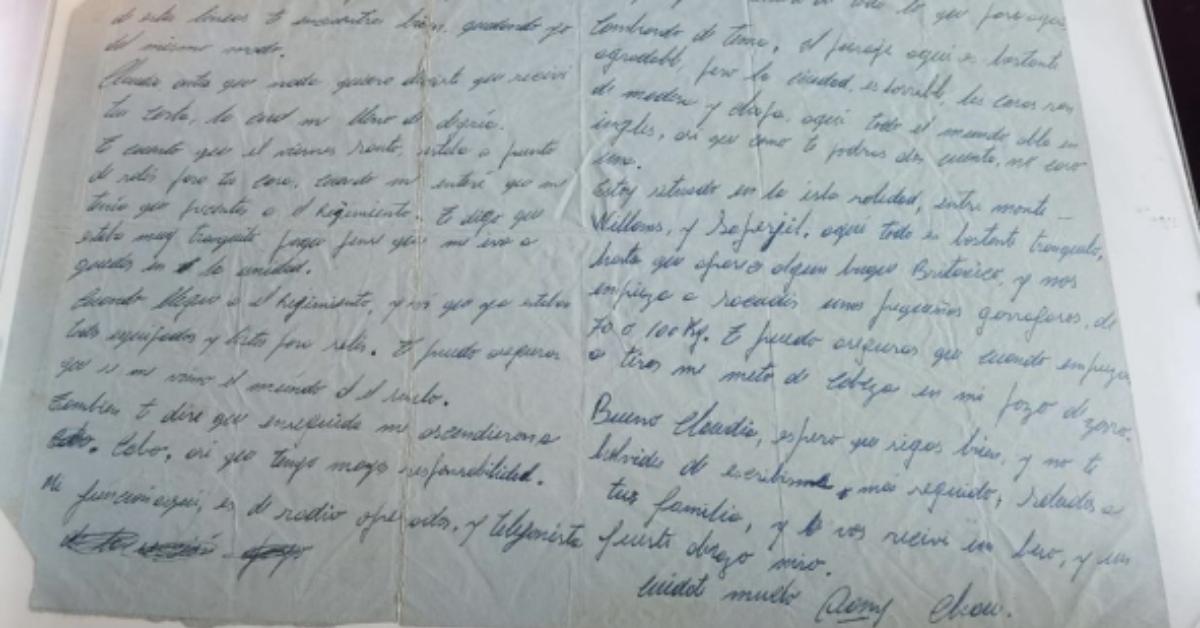 de estas lineas te encuentres bien, quedando yo
del mismo modo.
Claudia antes que nada quiero decirte que recivi
tu carta, la cual me lleno de alegria.
Te cuento que el viernes santo, estaba a punto
de salir para tu casa, cuando me enteré que me
tenia que presentar a el Regimiento. Te digo que
estaba muy tranquilo porque pense que me iva a
quedar en la unidad.
Cuando llegue a el Regimiento, y vi que ya estaban
todos equipados y listos para salir. Te puedo asegurar
que se me vino el mundo a el suelo.
Tambien te dire que enseguida me ascendieron a
Cabo, asi que tengo mayor responsabilidad.
Mi funcion aqui, es de radio operador, y telefonista
todo lo que pase aqui
Cambiando de tema, el paisaje aqui es bastante
agradable, pero la ciudad, es horrible, las casas son
de madera y chapa, aqui todo el mundo abla en
ingles, asi que como te podras dar cuenta, no caso
una.
Estoy situado en la isla soledad, entre monte
Williams, y Saperjil, aqui todo es bastante tranquilo,
hasta que aparece algun buque Britanico, y nos
empieza a sacudir unos pequeños garrafones, de
70 o 100 Kg. Te puedo asegurar que cuando empieza
a tirar me meto de cabeza en mi pozo de zorro.
Bueno Claudia, espero que sigas bien, y no te
holvides de escribirme mas seguido, saludos a
tus familia, y vos recivi un beso, y un
fuerte abrazo mio.
cuidate mucho Chau.